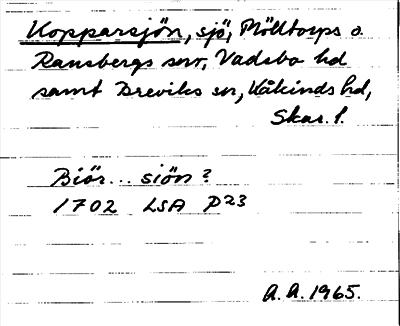 Kopparsjön, sjö, Mölltorps o.
Ransbergs snr, Vadsbo hd
samt Breviks sn, Kåkinds hd,
Skar. l.
Biör... siön?
1702 LSA P23
A. A. 1965.